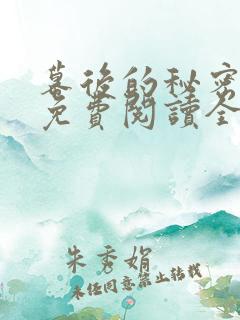 幕後的秘密
免費閱讀全
朱秀娟
未經同意禁止轉載